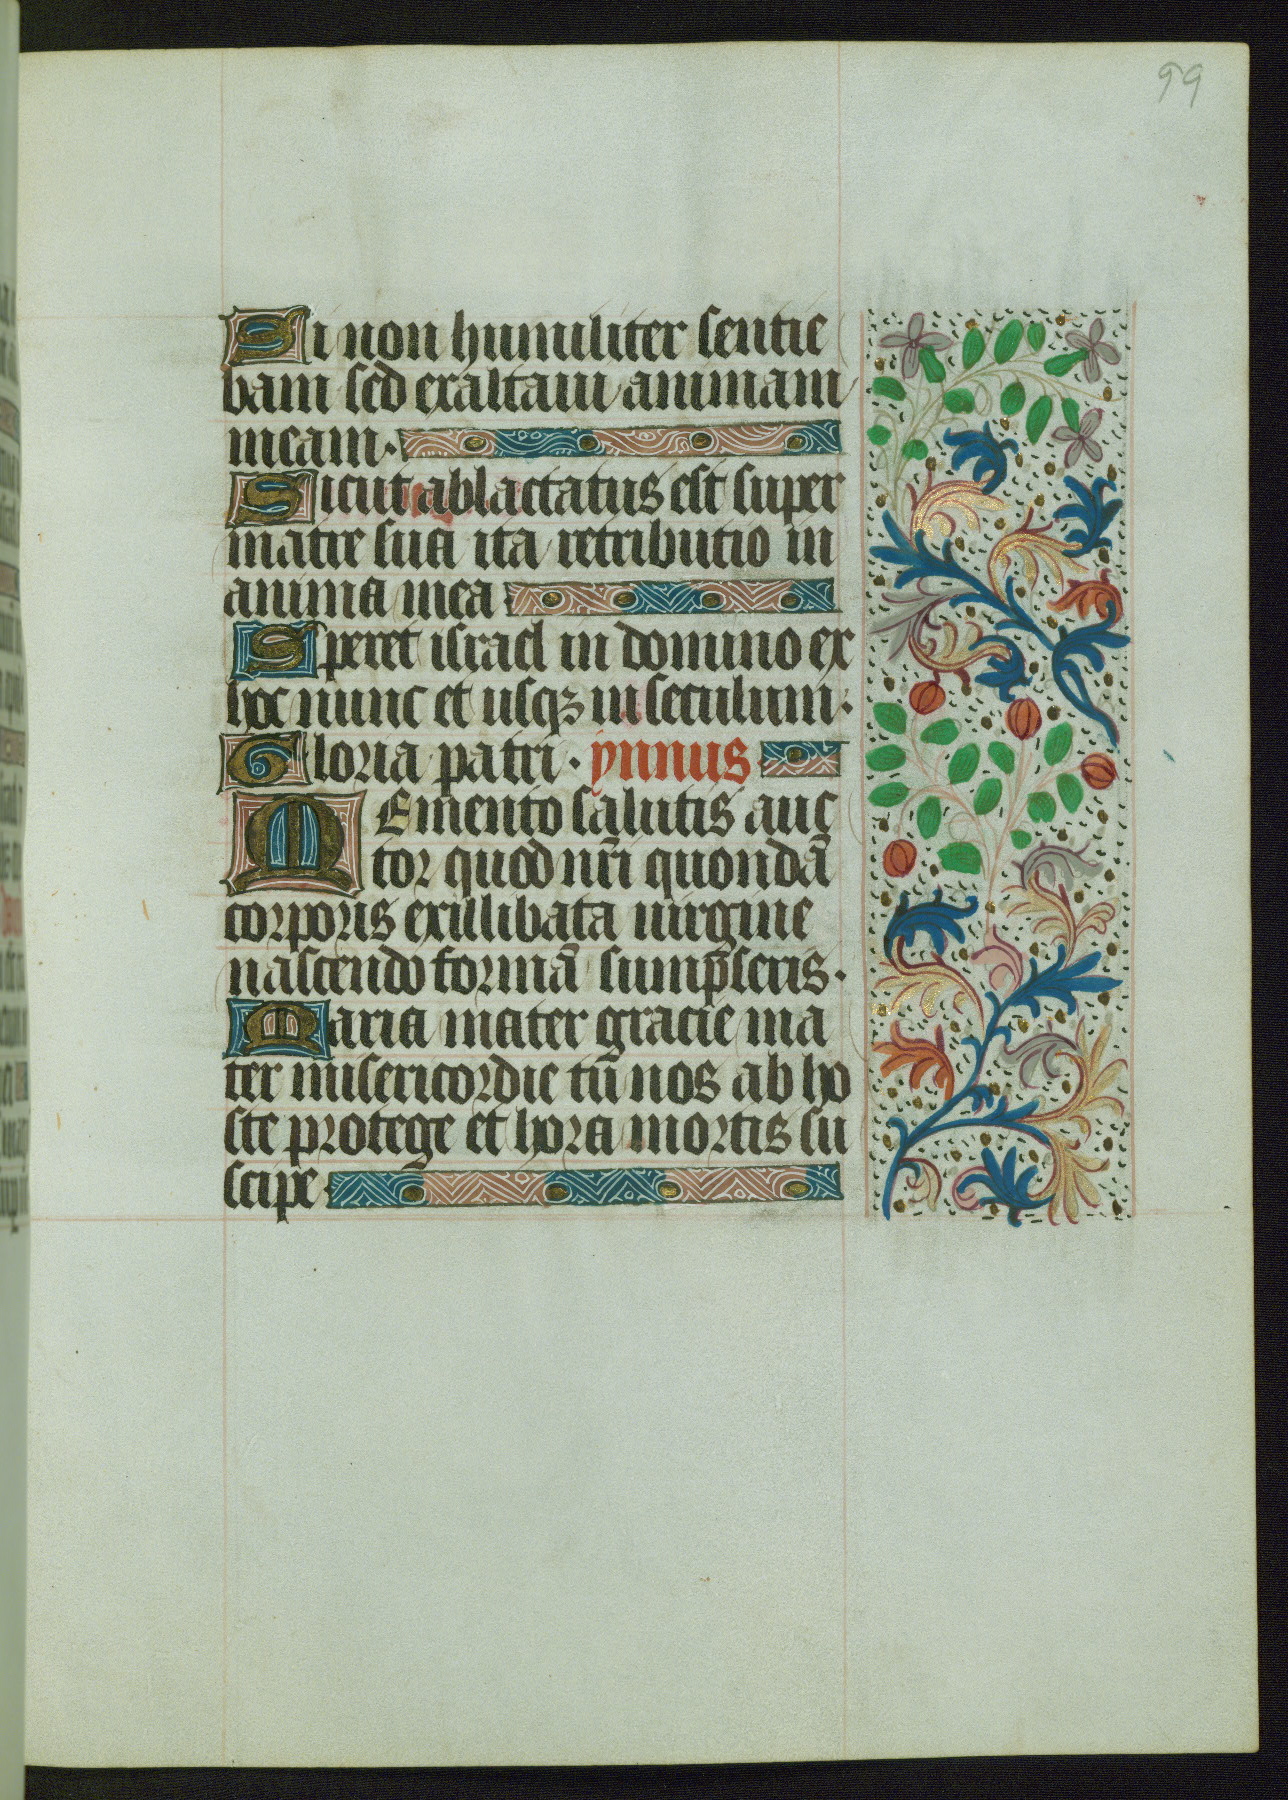 99
Si non humiliter sentie
bam sed exaltaui animam
meam.
Sicut ablactatus est super
matre sua ita retributio in
anima mea.
Speret israel in domino ex
hoc nunc et usqꝫ in seculum.
Gloria patri. ynnus
Memento salutis auc
tor quod nr̄i quondā
corporis exillibata uirgine
nascendo formā sump̄seris.
Maria mater gracie ma
ter misericordie tū nos ab ho
ste protege et hora mortis su
scipe.